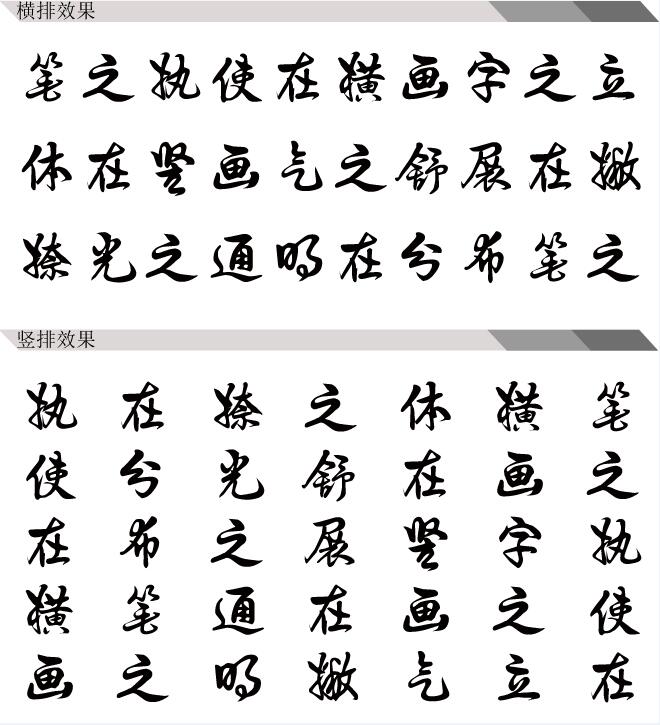 横排效果
笔之执使在横画字之立
体在竖画气之舒展在撇
捺光之通明在分布笔之
竖排效果
笔之执使在
横画字之立
体在竖画气
之舒展在撇
捺光之通明
在分布笔之
执使在横画